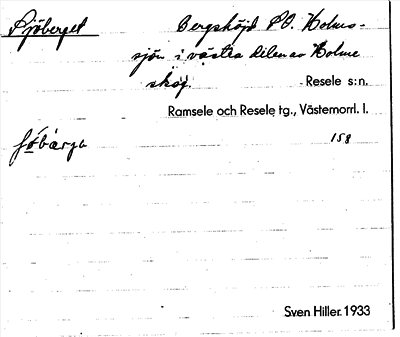 Sjöberget Bergshöjd SO. Holms-
sjön i västra delen av Holme
skog. Resele s:n.
Ramsele och Resele tg., Västernorrl. l.
158
Sven Hiller. 1933